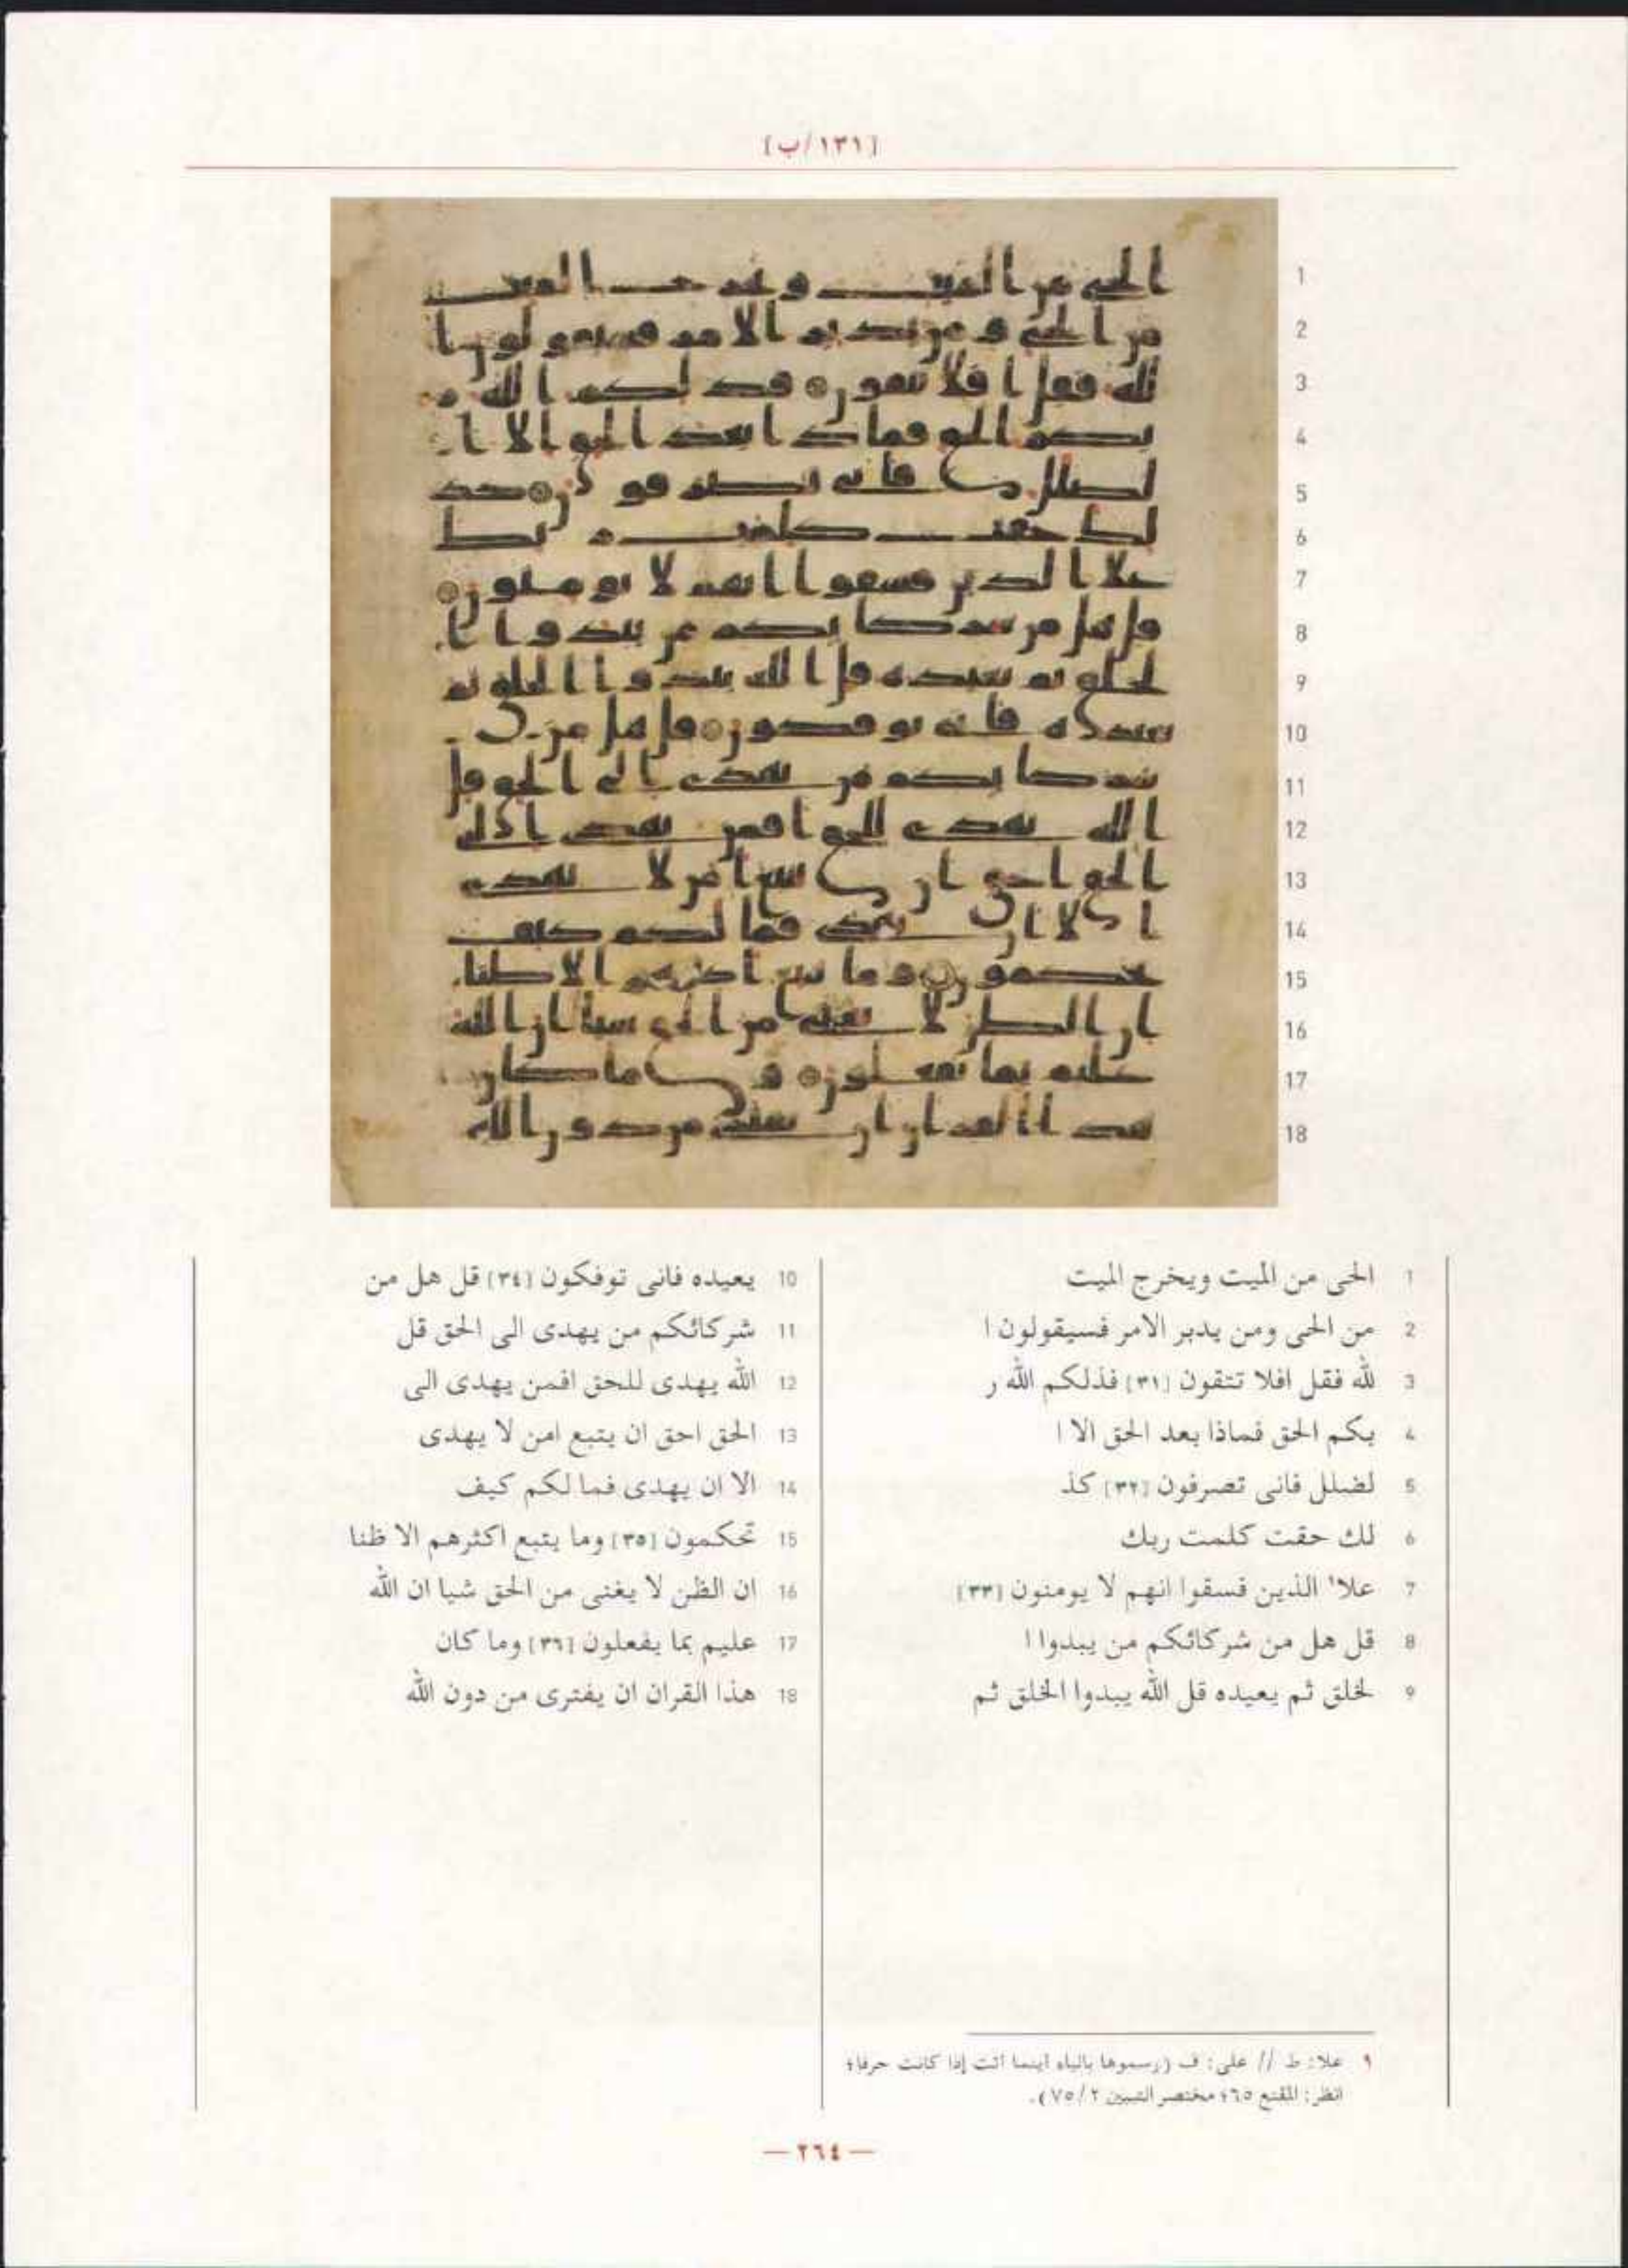 [١٣١/ب]
1 الحى من الميت ويخرج الميت
2 من الحى ومن يدبر الامر فسيقولون ا
3 لله فقل افلا تتقون [٣١] فذلكم الله ر
4 بكم الحق فماذا بعد الحق الا ا
5 لضلل فانى تصرفون [٣٢] كذ
6 لك حقت كلمت ربك
7 علا١ الذين فسقوا انهم لا يومنون [٣٣]
8 قل هل من شركائكم من يبدوا ا
9 لخلق ثم يعيده قل الله يبدوا الخلق ثم
10 يعيده فانى توفكون [٣٤] قل هل من
11 شركائكم من يهدى الى الحق قل
12 الله يهدى للحق افمن يهدى الى
13 الحق احق ان يتبع امن لا يهدى
14 الا ان يهدى فما لكم كيف
15 تحكمون [٣٥] وما يتبع اكثرهم الا ظنا
16 ان الظن لا يغنى من الحق شيا ان الله
17 عليم بما يفعلون [٣٦] وما كان
18 هذا القران ان يفترى من دون الله
١ علا: ط // على: ف (رسموها بالياء اينما اتت إذا كانت حرفا؛
انظر: المقنع ٦٥؛ مختصر التبيين ٧٥/٢).
— ٢٦٤ —